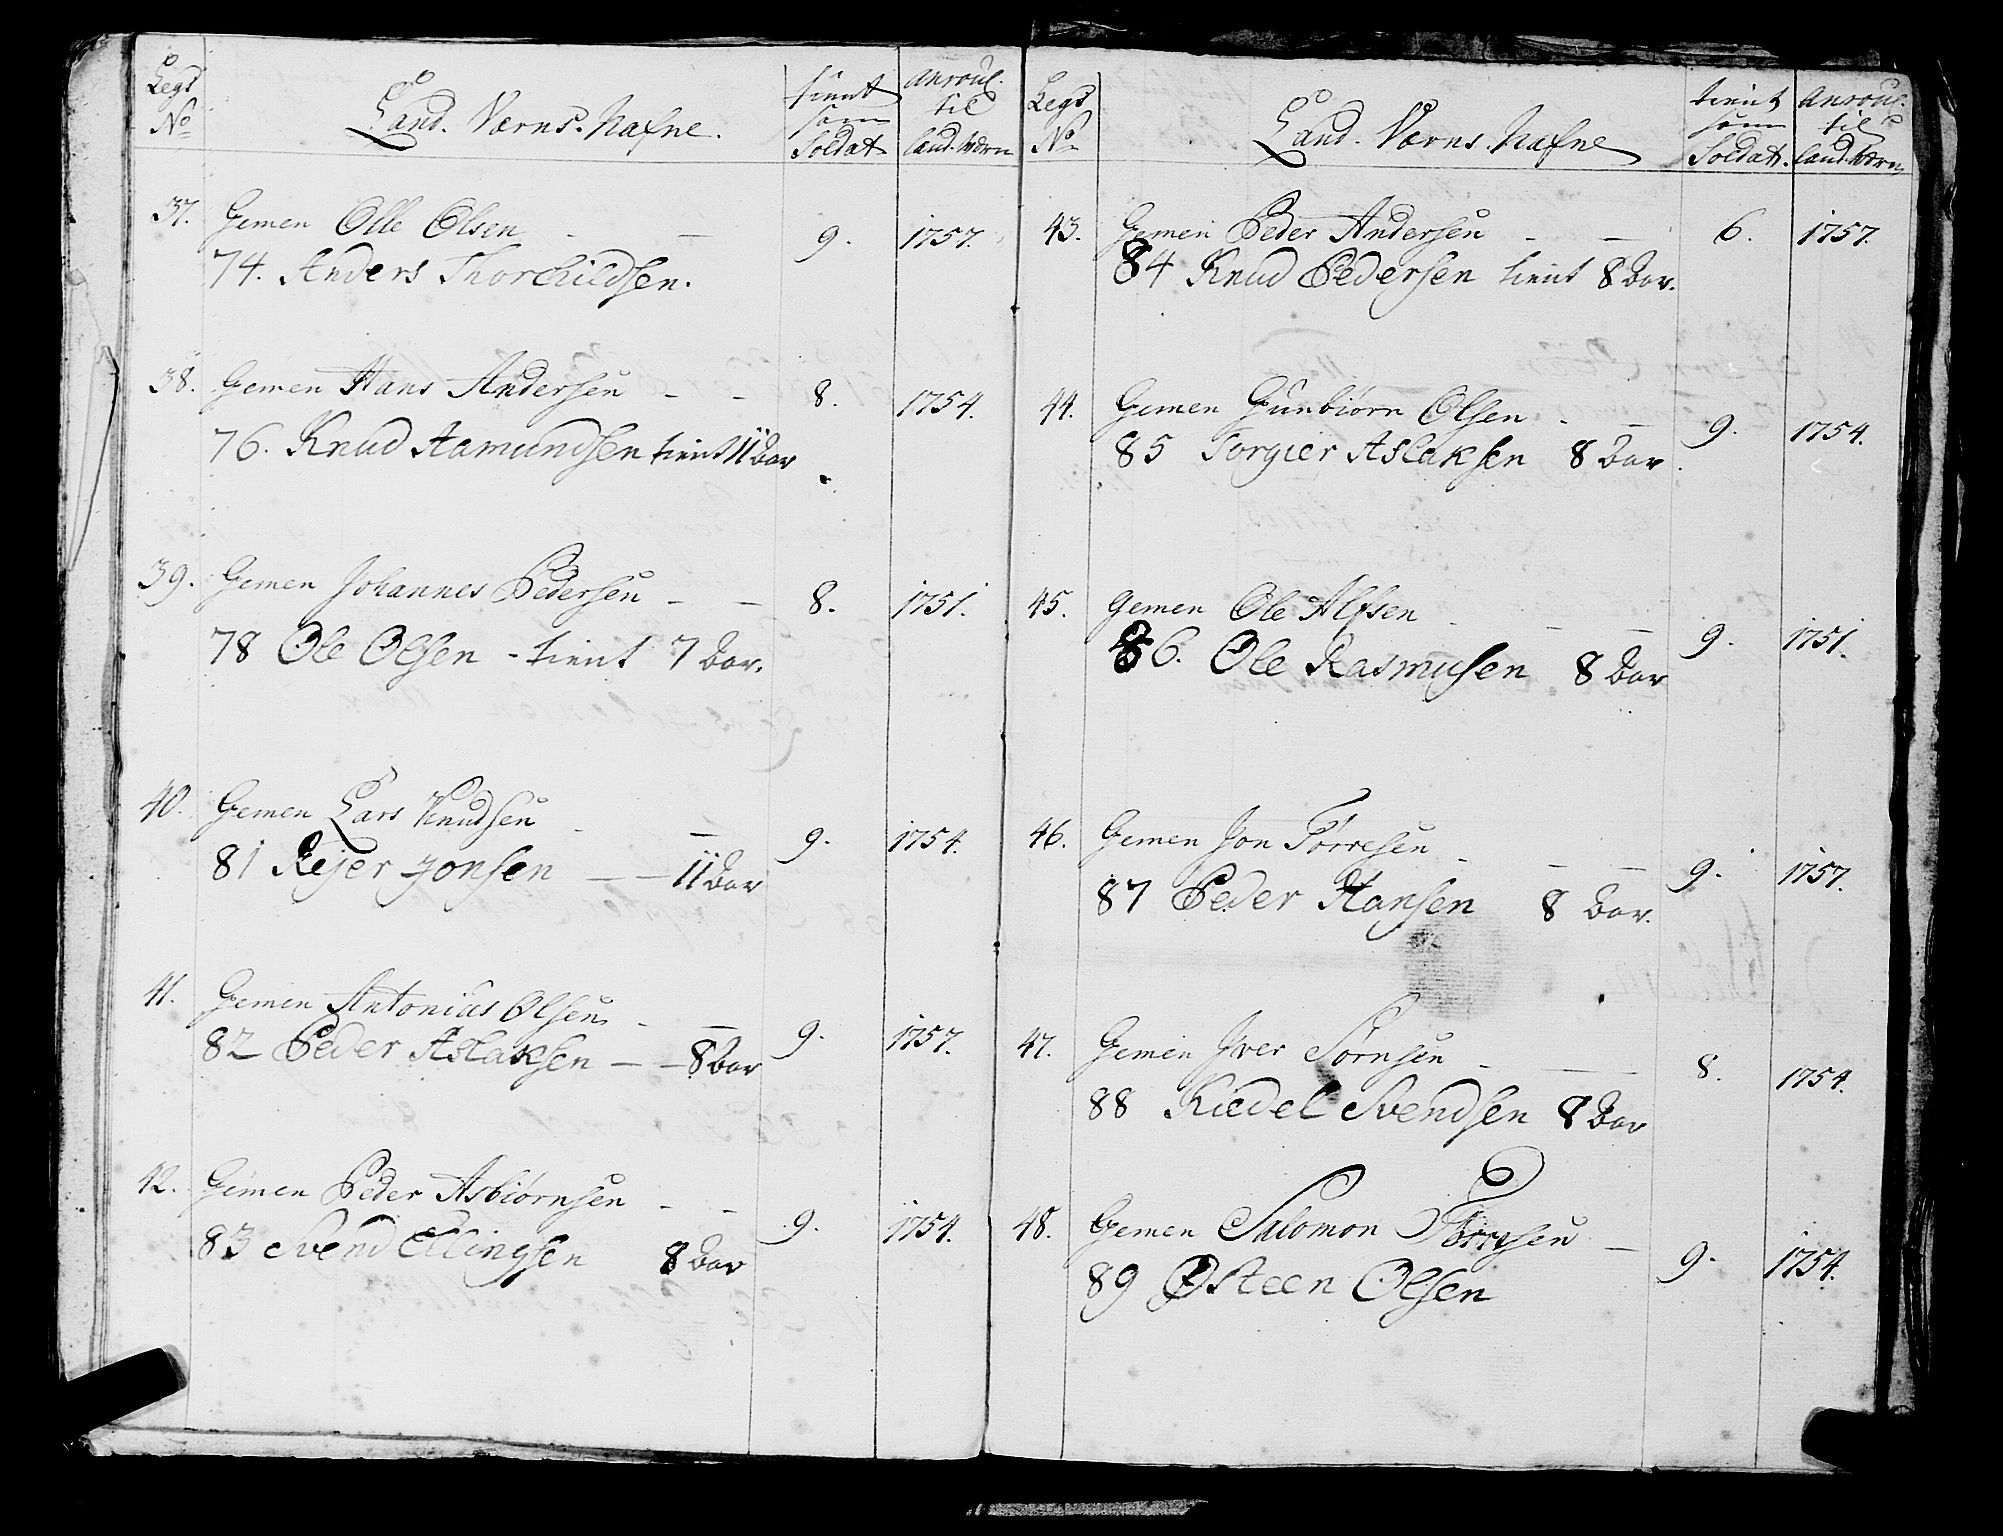 Legs No Land. Værns. Nafne. tient som Soldat anroul. til land. Værn
37. Gemen Olle Olsen - - 9. 1757.
74. Anders Thorchildsen.
38. Gemen Hans Andersen - - 8. 1754.
76. Knud Aamundsen tient 11 Aar
39. Gemen Johannes Pedersen - - 8. 1751.
78 Ole Olsen - tient 7 Aar.
40. Gemen Lars Knudsen - - 9. 1754.
81 Rejer Jonsen - - 11 Aar
41. Gemen Antonius Olsen - - 9. 1757.
82 Peder Aslaksen - - 8 Aar
42. Gemen Peder Asbiørnsen - - 9. 1754.
83 Svend Ellingsen 8 Aar
Legs No Land. Værns. Nafne tient som Soldat. anroul. til land. Værn
43. Gemen Peder Andersen - - 6. 1757.
84 Knud Pedersen tient 8 Aar.
44. Gemen Gunbiørn Olsen - - 9. 1754.
85 Torgier Aslaksen 8 Aar.
45. Gemen Ole Alfsen - - - 9. 1751.
86. Ole Rasmusen 8 Aar
46. Gemen Jon Tørresen - - - 9. 1757.
87 Peder Hansen 8 Aar.
47. Gemen Jver Sørnsen - - - 8. 1754.
88 Kiedel Svendsen 8 Aar
48. Gemen Salomon Tørresen - 9. 1754.
89 Østeen Olsen